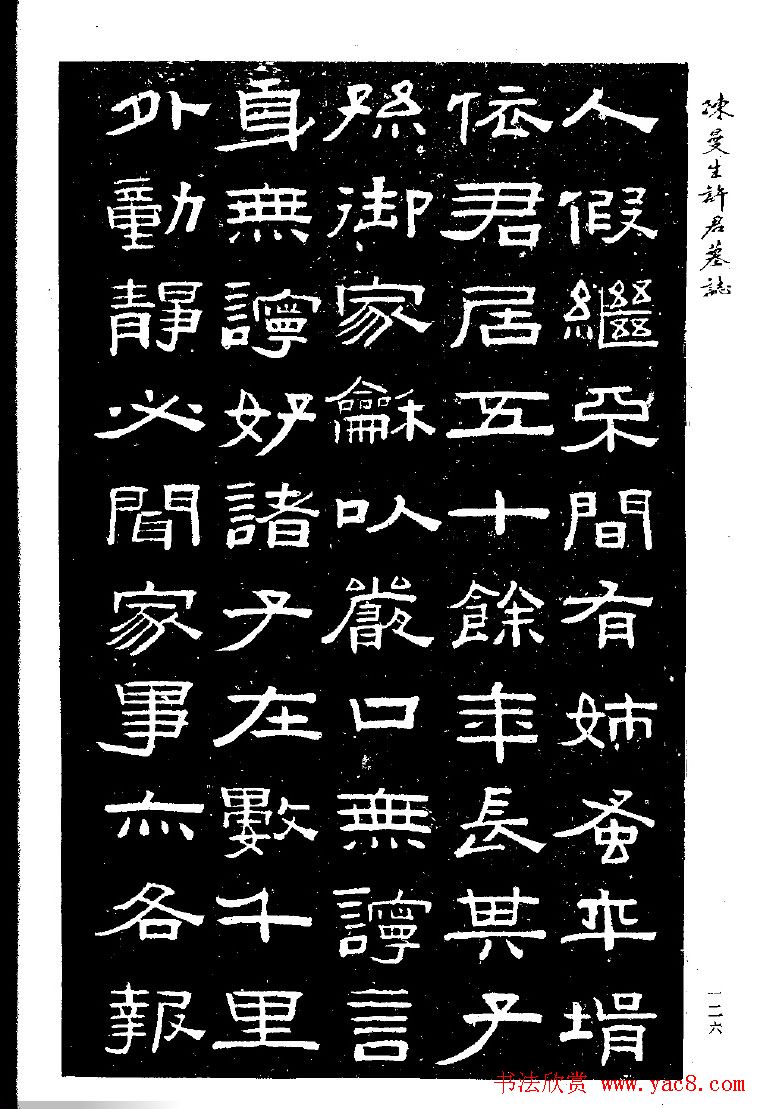 陳曼生許君墓誌
人假繼間有姊蚤卒壻
依君居五十餘年長其子
孫御家龢㕥嚴口無言
身無好諸子在數千里
外動靜必聞家事亦各報
一二六
书法欣赏 www.yac8.com